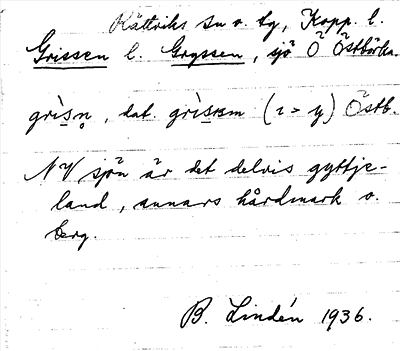 Rättviks sn o. tg, Kopp. l.
Grissen l. Gryssen, sjö Ö Östbörka.
grìsn̥, dat. grìsnem (i = y) Östb.
NV sjön är det delvis gyttje-
land, annars hårdmark o.
berg.
B. Lindén 1936.